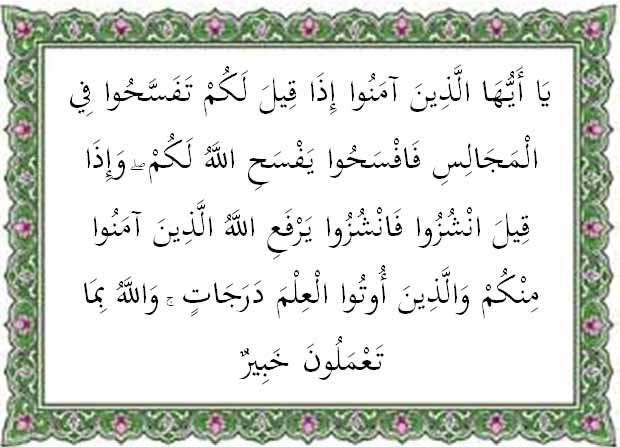 يَا أَيُّهَا الَّذِينَ آمَنُوا إِذَا قِيلَ لَكُمْ تَفَسَّحُوا فِي
الْمَجَالِسِ فَافْسَحُوا يَفْسَحِ اللَّهُ لَكُمْ ۖ وَإِذَا
قِيلَ انْشُزُوا فَانْشُزُوا يَرْفَعِ اللَّهُ الَّذِينَ آمَنُوا
مِنْكُمْ وَالَّذِينَ أُوتُوا الْعِلْمَ دَرَجَاتٍ ۚ وَاللَّهُ بِمَا
تَعْمَلُونَ خَبِيرٌ